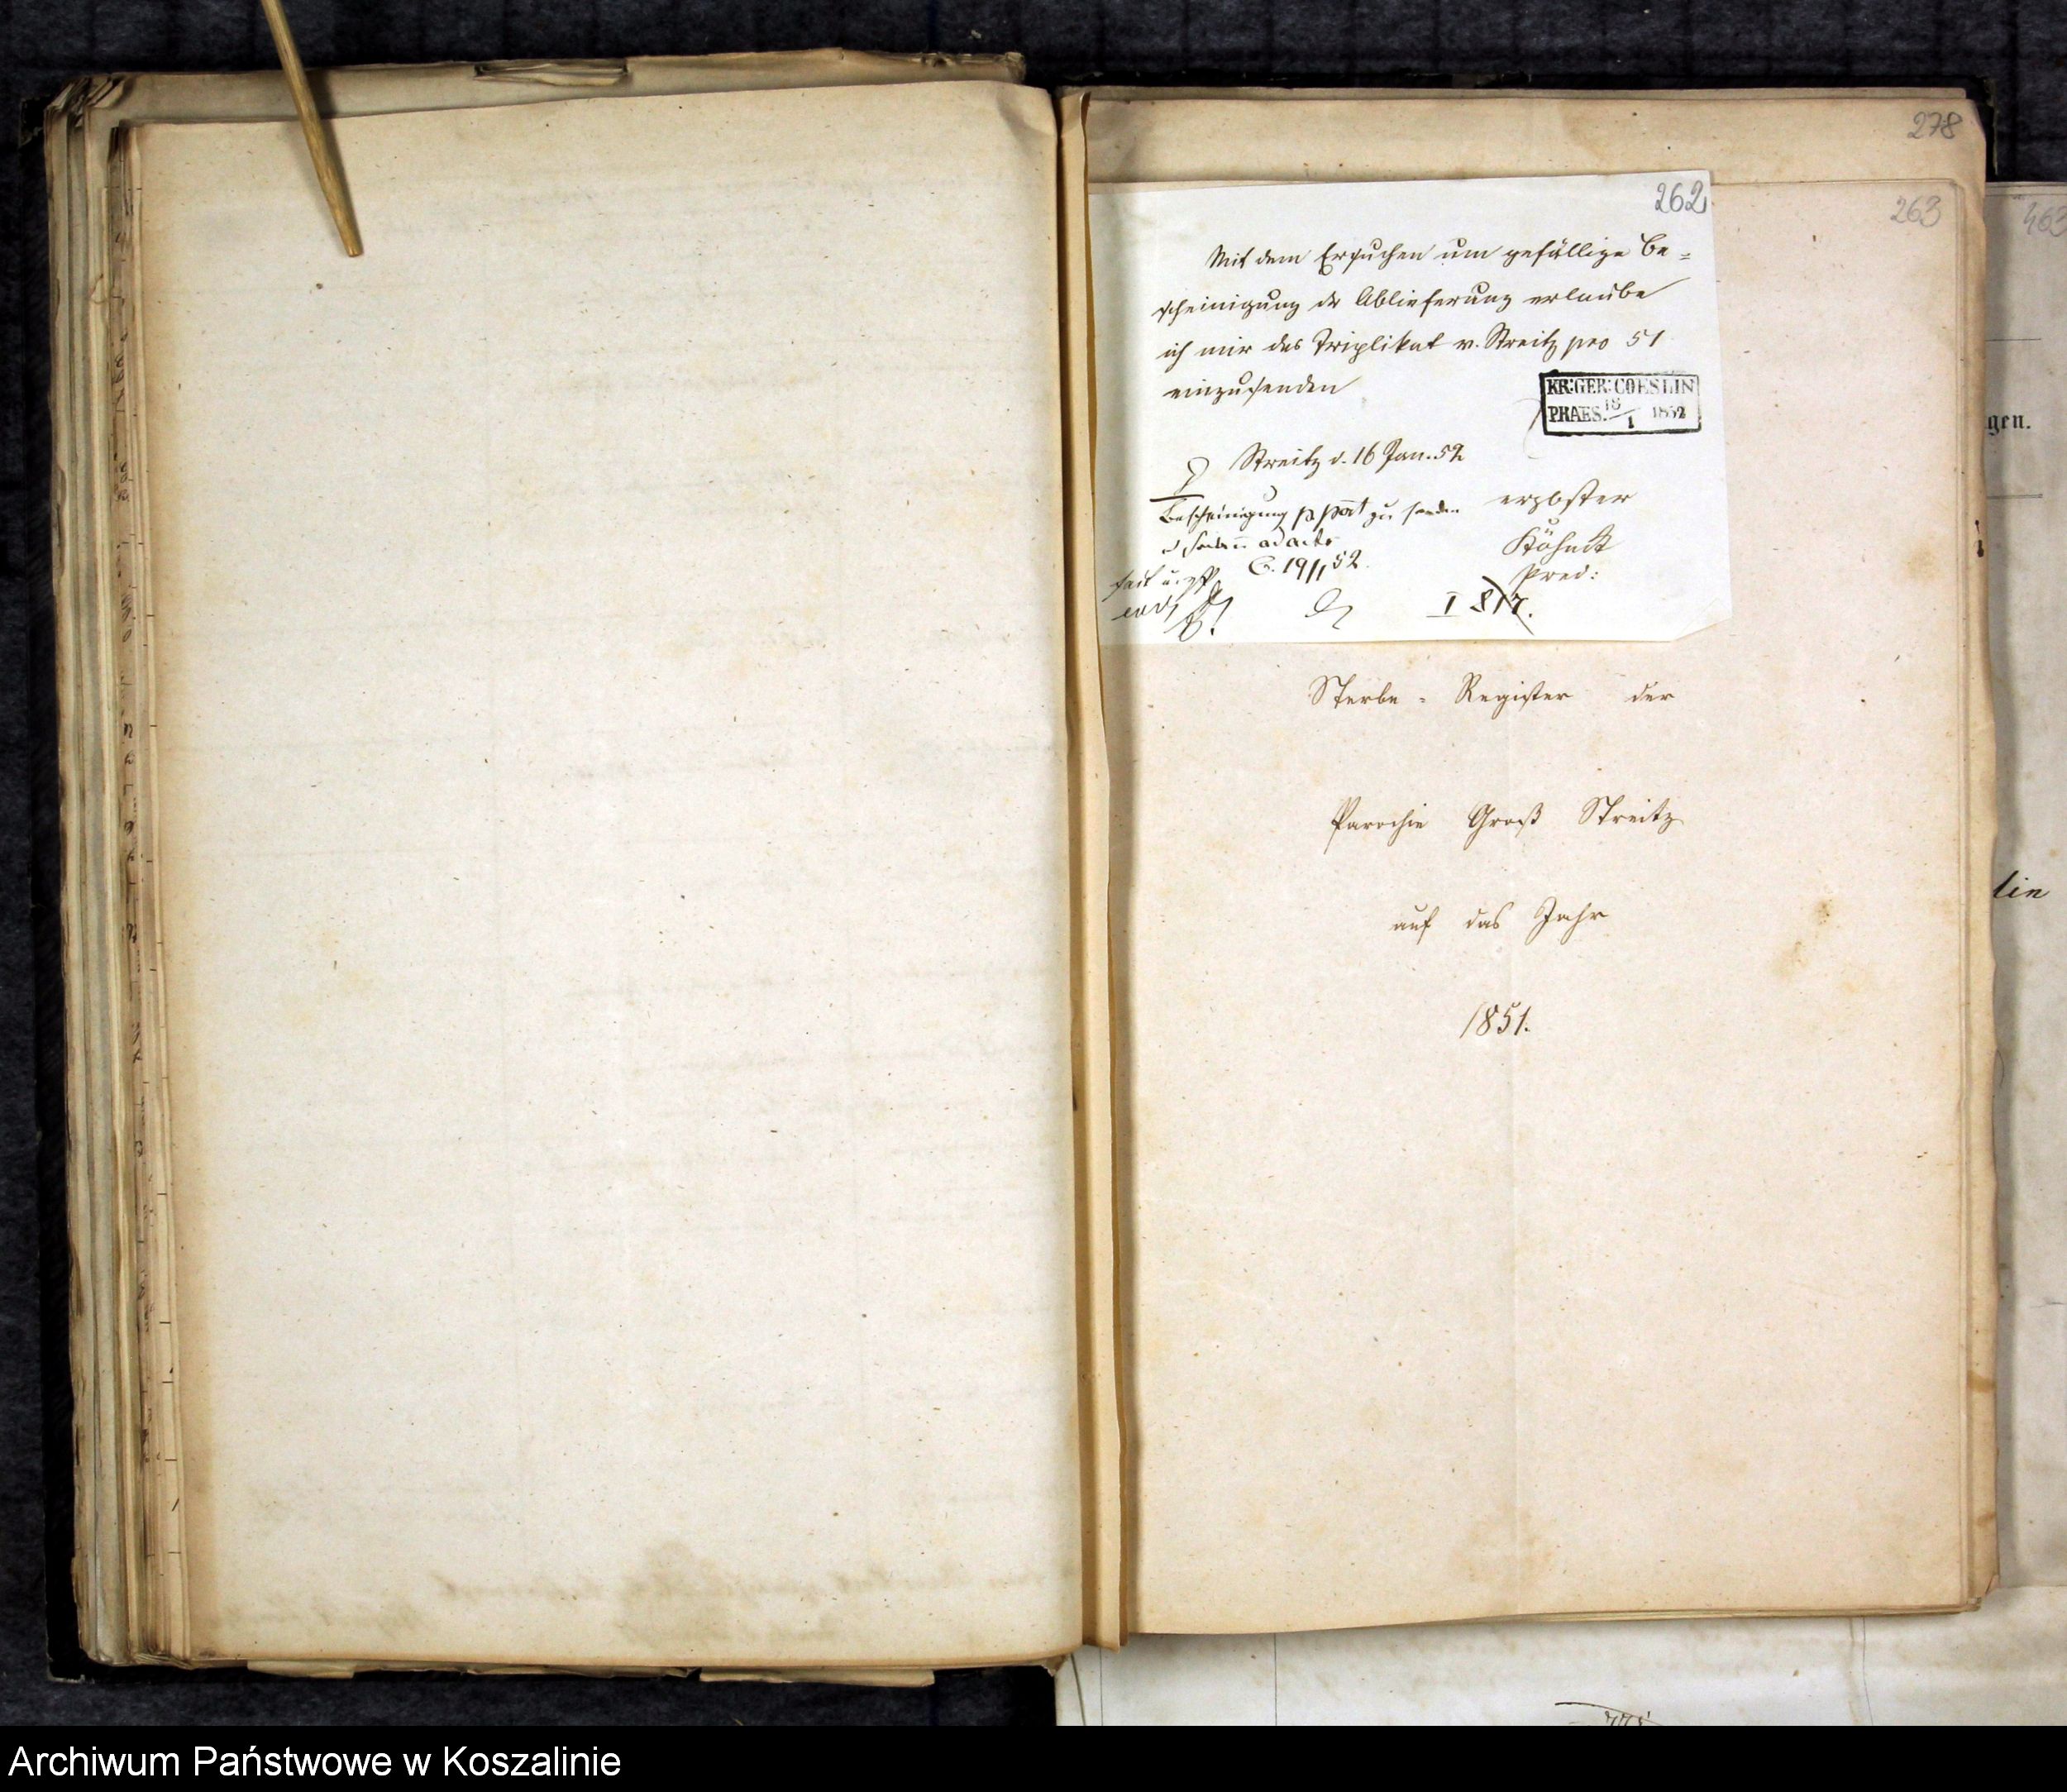 278
262
263
463
Mit dem Ersuchen um gefällige Be-
scheinigung der Ablieferung erlaube
ich mir das Triplikat v. Streitz pro 51
einzusenden
KR:GER:COESLIN
PRAES. 18/1 1852
Streitz d. 16 Jan. 52
ergbster
Bescheinigung p post zu senden
ad acta
C. 19/1 52.
Pred:
I 817.
Sterbe-Register der
Parochie Groß Streitz
auf das Jahr
1851.
gen.
lin
Archiwum Państwowe w Koszalinie